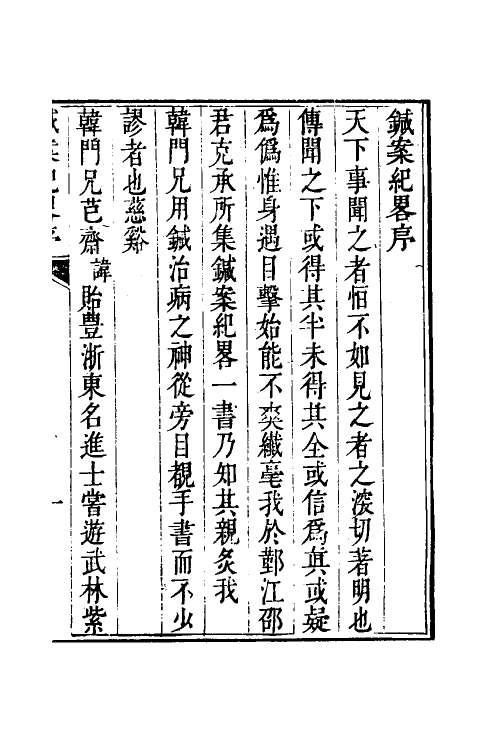 鍼案紀畧序
天下事聞之者恒不如見之者之深切著明也
傳聞之下或得其半未得其全或信爲眞或疑
爲僞惟身遇目擊始能不爽纖毫我於鄞江邵
君克承所集鍼案紀畧一書乃知其親灸我
韓門兄用鍼治病之神從旁目覩手書而不少
謬者也慈谿
韓門兄芑齋諱貽豐浙東名進士嘗遊武林紫
鍼案紀畧序
一